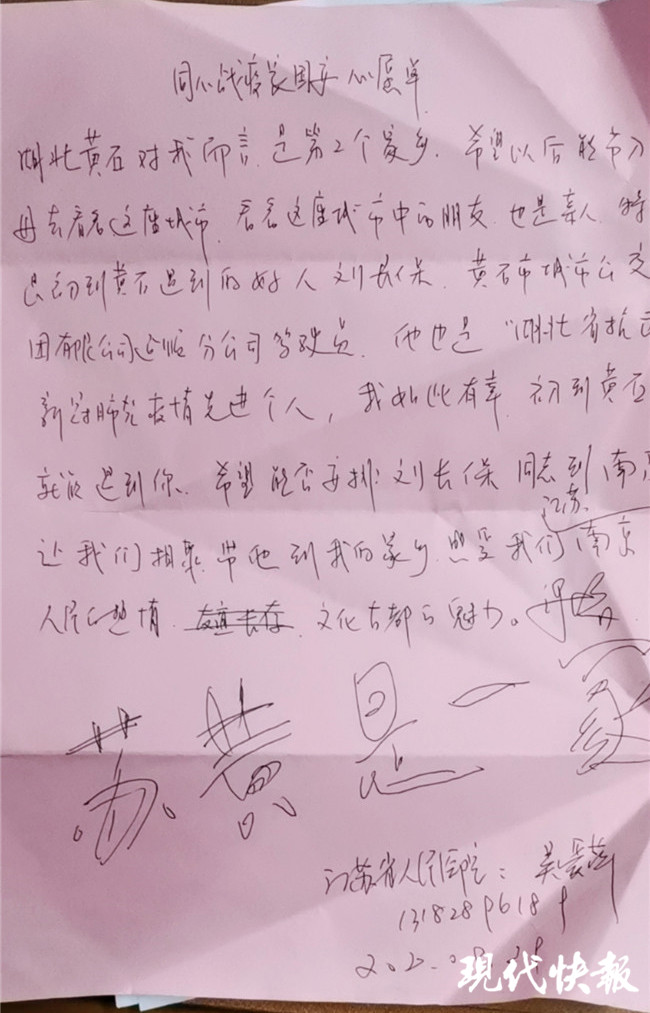 同心战疫家国安 心愿单
湖北黄石对我而言,是第2个家乡.希望以后能有
再去看看这座城市,看看这座城市中的朋友,也是亲人,特
是初到黄石遇到的好人刘长保.黄石市城市公交
团有限公司 分公司驾驶员.他也是"湖北省抗
新冠肺炎疫情先进个人,我如此有幸,初到黄石
就能遇到你.希望能否安排刘长保同志到南
江苏
让我们相聚,带他到我的家乡,感受我们南京
人民的热情, 文化古都的魅力。
苏黄是一家
江苏省人民医院:吴
现代快报